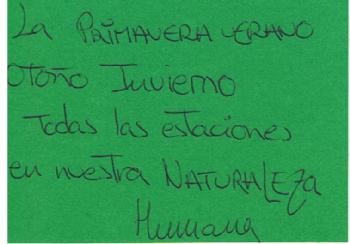 La PRIMAVERA VERANO
Otoño Invierno
Todas las estaciones
en nuestra NATURALEZA
Humana